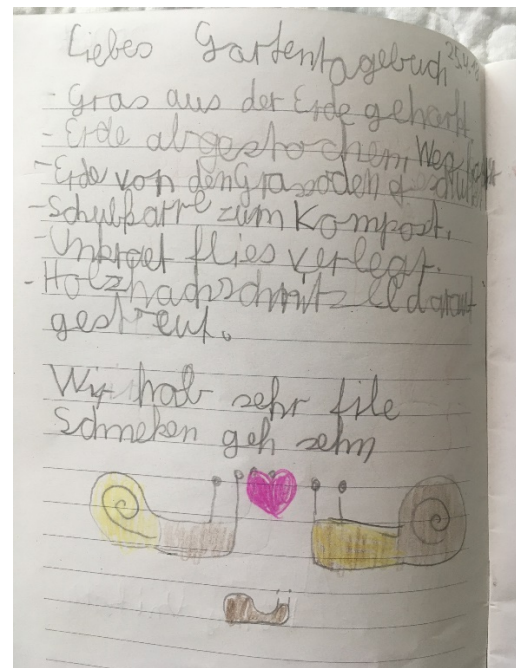 Liebes Gartentagebuch
- Gras aus der Erde geharkt
- Erde abgestochem
- Erde von den Grassoden
- Schubkarre zum Kompost.
- Unkraut flies verlegt.
- Holzhachschnitzell darauf
gestreut.
Wir hab sehr file
Schneken geh sehn